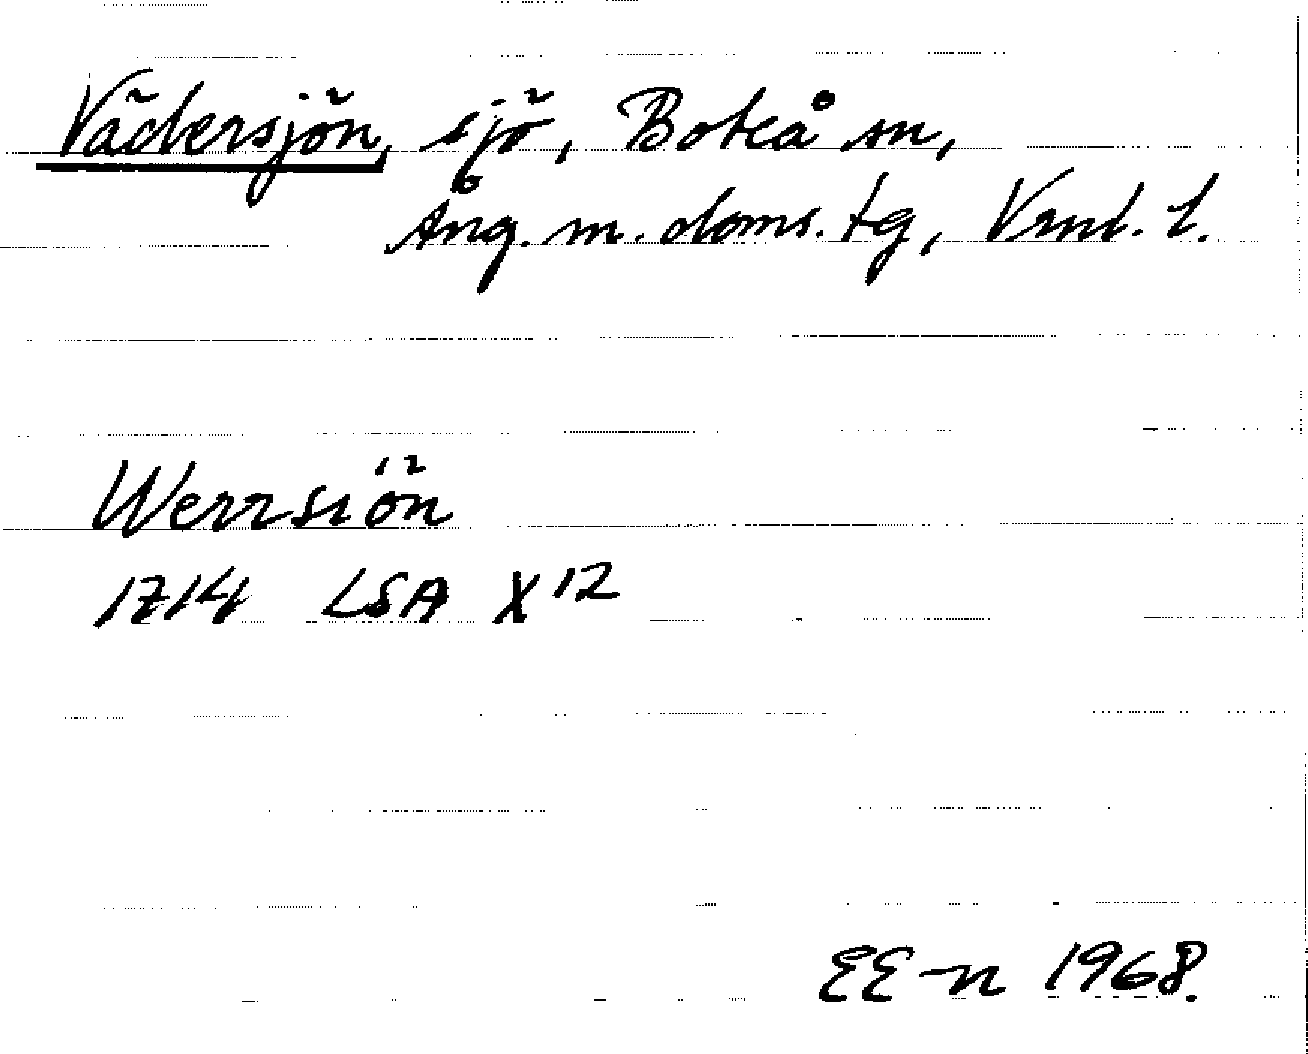 Vädersjön, sjö, Boteå sn,
Ång. m. doms. tg, Vrnl. l.
Werrsiön
1714 LSA X 12
EE-n 1968.